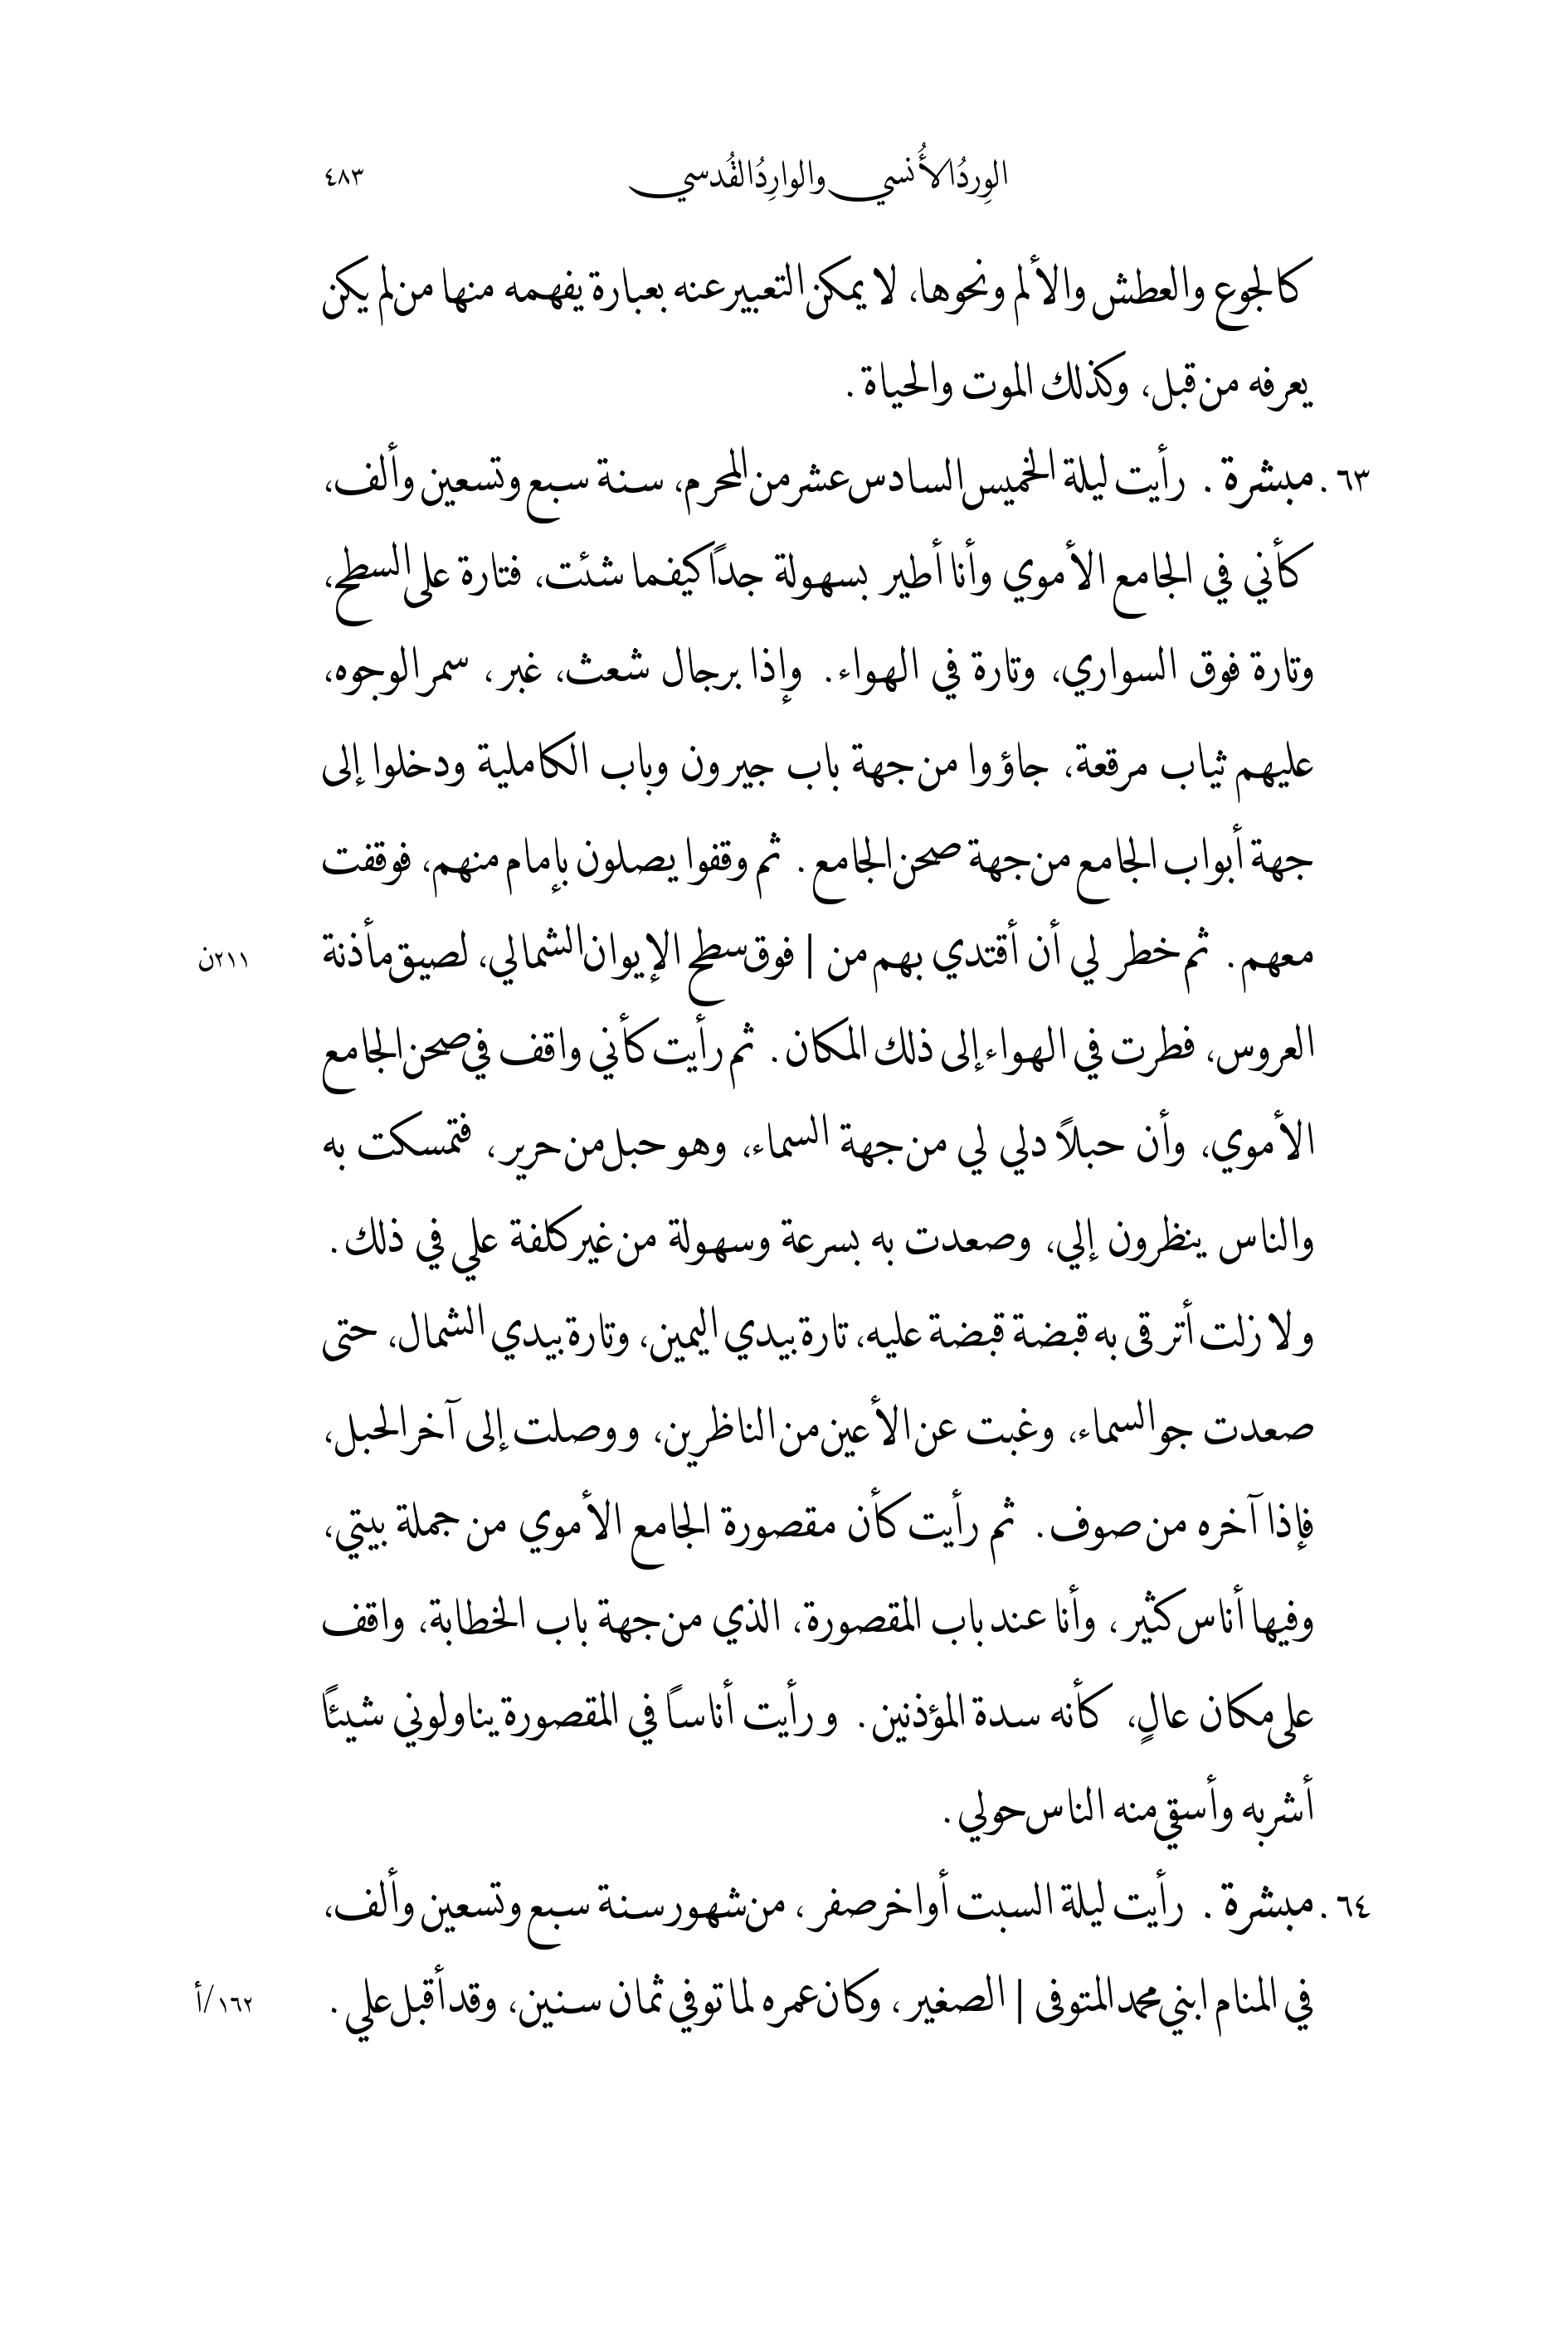 الوِردُ الأُنسي والوارِدُ القُدسي ٤٨٣
كالجوع والعطش والألم ونحوها، لا يمكن التعبير عنه بعبارة يفهمه منها من لم يكن
يعرفه من قبل، وكذلك الموت والحياة.
٦٣. مبشرة. رأيت ليلة الخميس السادس عشر من المحرم، سنة سبع وتسعين وألف،
كأني في الجامع الأموي وأنا أطير بسهولة جداً كيفما شئت، فتارة على السطح،
وتارة فوق السواري، وتارة في الهواء. وإذا برجال شعث، غبر، سمر الوجوه،
عليهم ثياب مرقعة، جاؤوا من جهة باب جيرون وباب الكاملية ودخلوا إلى
جهة أبواب الجامع من جهة صحن الجامع. ثم وقفوا يصلون بإمام منهم، فوقفت
معهم. ثم خطر لي أن أقتدي بهم من | فوق سطح الإيوان الشمالي، لصيق مأذنة ٢١١ن
العروس، فطرت في الهواء إلى ذلك المكان. ثم رأيت كأني واقف في صحن الجامع
الأموي، وأن حبلاً دلي لي من جهة السماء، وهو حبل من حرير، فتمسكت به
والناس ينظرون إلي، وصعدت به بسرعة وسهولة من غير كلفة علي في ذلك.
ولا زلت أترقى به قبضة قبضة عليه، تارة بيدي اليمين، وتارة بيدي الشمال، حتى
صعدت جو السماء، وغبت عن الأعين من الناظرين، ووصلت إلى آخر الحبل،
فإذا آخره من صوف. ثم رأيت كأن مقصورة الجامع الأموي من جملة بيتي،
وفيها أناس كثير، وأنا عند باب المقصورة، الذي من جهة باب الخطابة، واقف
على مكان عالٍ، كأنه سدة المؤذنين. ورأيت أناساً في المقصورة يناولوني شيئاً
أشربه وأسقي منه الناس حولي.
٦٤. مبشرة. رأيت ليلة السبت أواخر صفر، من شهور سنة سبع وتسعين وألف،
في المنام ابني محمد المتوفى | الصغير، وكان عمره لما توفي ثمان سنين، وقد أقبل علي. ١٦٢/أ